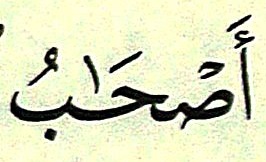 أَصْحَٰبُ